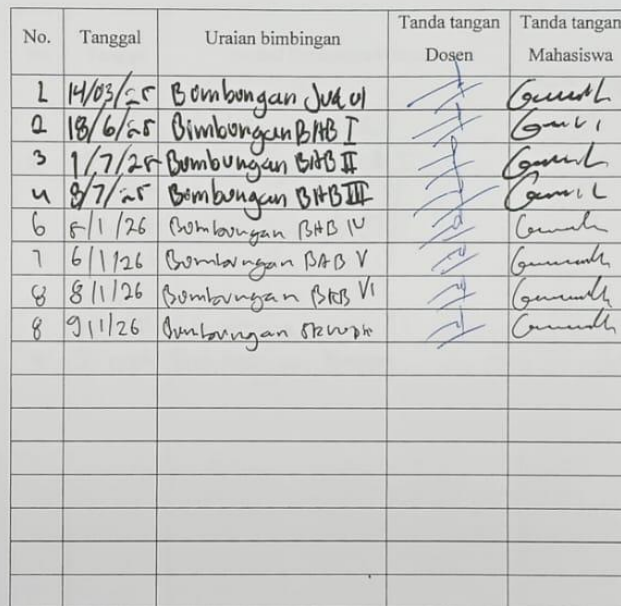 No. Tanggal Uraian bimbingan Tanda tangan Dosen Tanda tangan Mahasiswa
1 14/03/25 Bimbingan Judul
2 18/6/25 Bimbingan BAB I
3 1/7/25 Bimbingan BAB II
4 8/7/25 Bimbingan BAB III
6 5/1/26 Bimbingan BAB IV
7 6/1/26 Bimbingan BAB V
8 8/1/26 Bimbingan BAB VI
8 9/1/26 Bimbingan